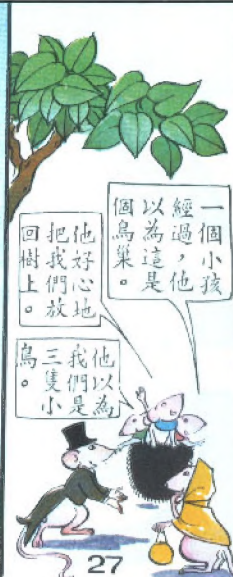 一個小孩
經過，他
以為這是
個鳥巢。
他好心地
把我們放
回樹上。
他以為
我們是
三隻小
鳥。
27